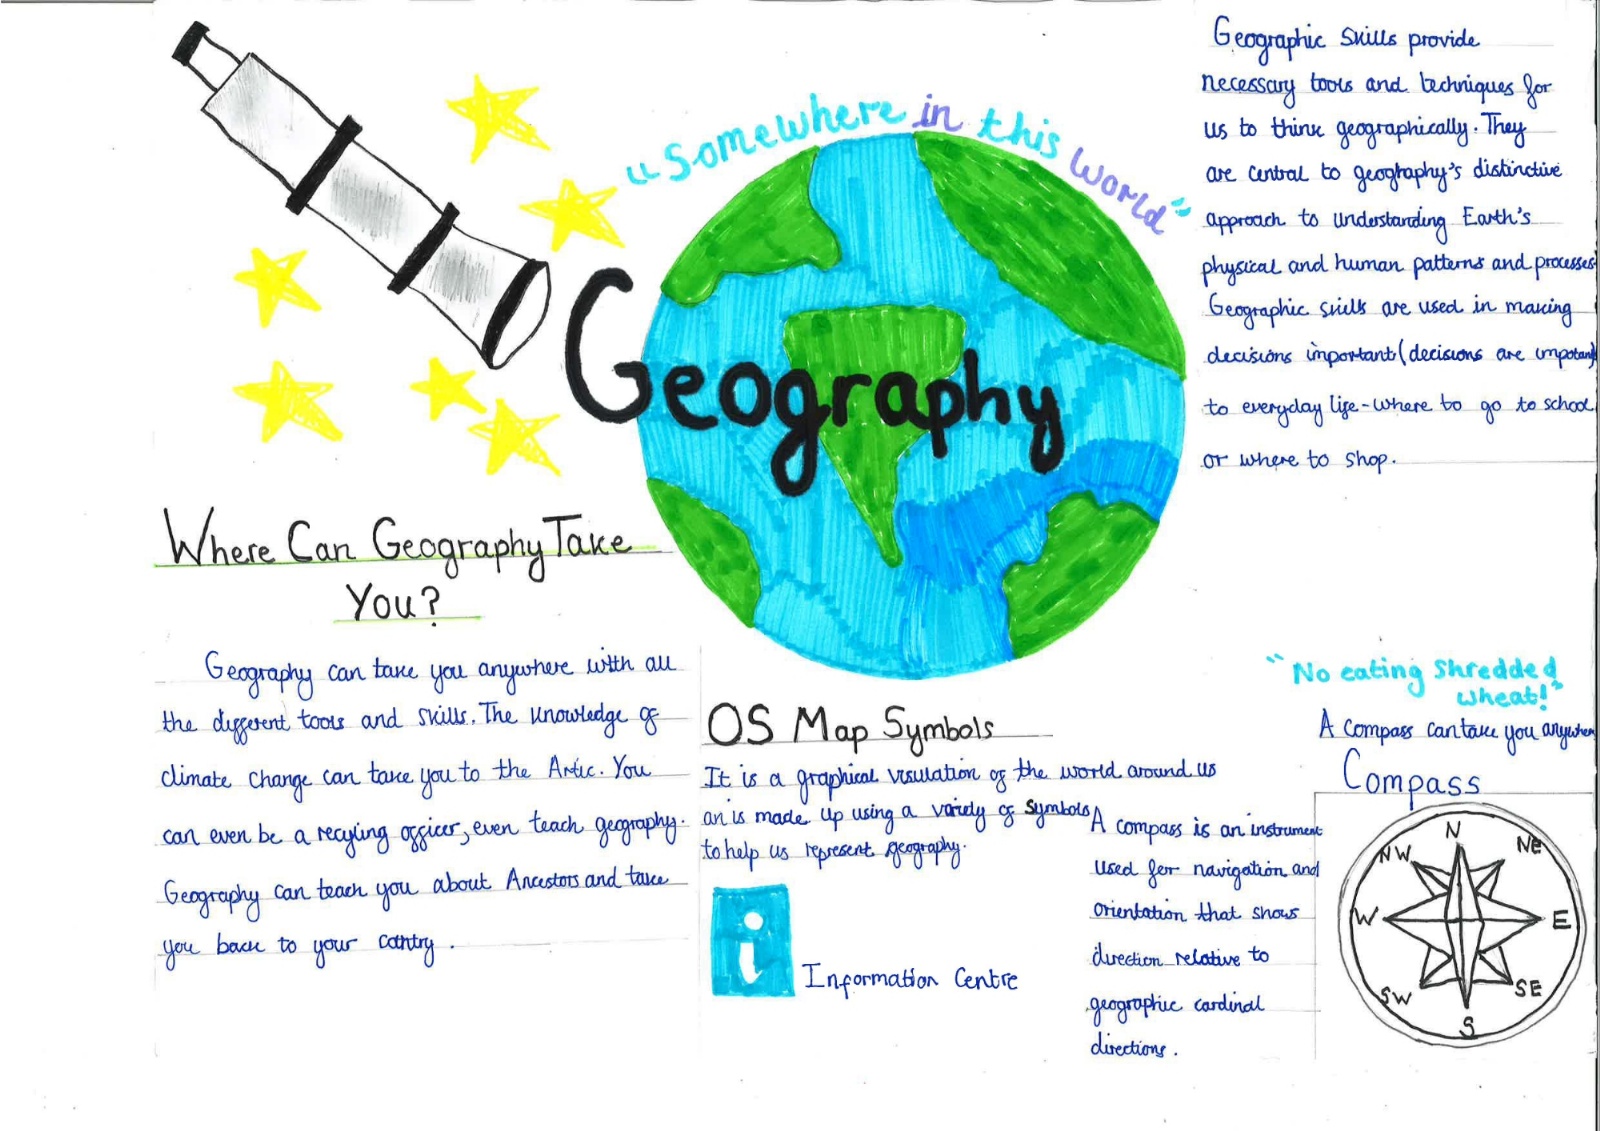 "Somewhere in this world"
Geography
Geographic skills provide
necessary tools and techniques for
us to think geographically. They
are central to geography's distinctive
approach to understanding Earth's
physical and human patterns and processes
Geographic skills are used in making
decisions important (decisions are impotant)
to everyday life - where to go to school
or where to shop.
Where Can Geography Take
You?
Geography can take you anywhere with all
the different tools and skills. The knowledge of
climate change can take you to the Artic. You
can even be a recyling officer, even teach geography.
Geography can teach you about Ancestors and take
you back to your contry.
OS Map Symbols
It is a graphical visulation of the world around us
an is made up using a variety of symbols
to help us represent geography.
i
Information Centre
"No eating shredded
wheat!"
A compass can take you anywhere
Compass
A compass is an instrument
used for navigation and
orientation that shows
direction relative to
geographic cardinal
directions.
N
NW
NE
W
E
SW
SE
S